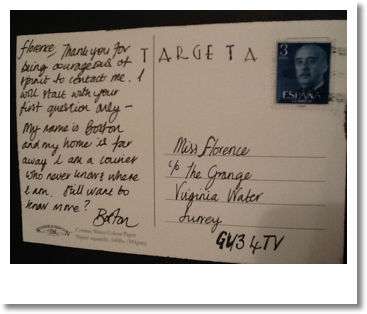 TARGETA
3
ESPAÑA
Florence, Thank you for
being courageous of
spirit to contact me. I
will start with your
first question only –
My name is Boston
and my home is far
away I am a courier
who never knows where
I am. Still want to
know more?
Boston
Miss Florence
c/o The Grange
Virginia Water
Surrey
GU3 4TV